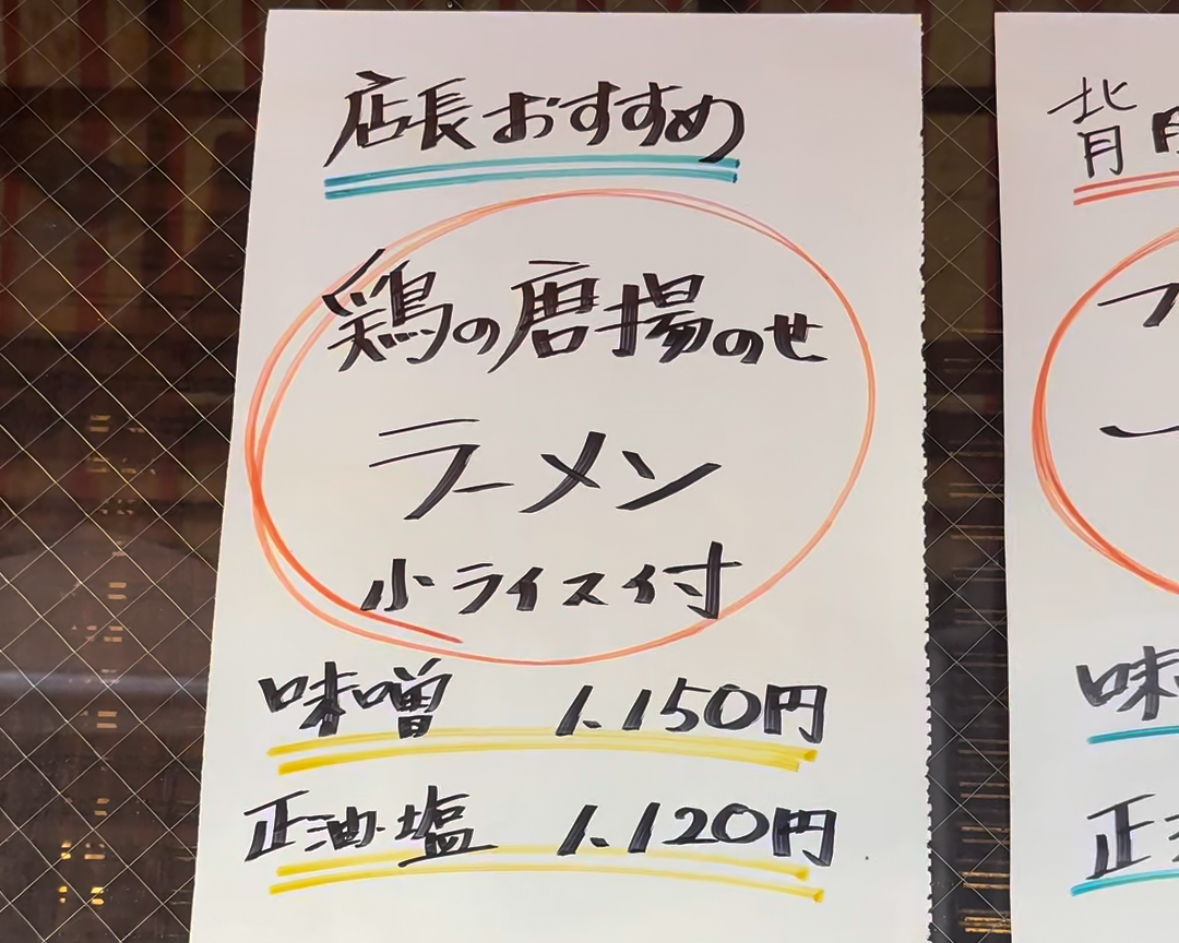 店長おすすめ
鶏の唐揚のせ
ラーメン
小ライス付
味噌 1.150円
正油・塩 1.120円
背
味
正